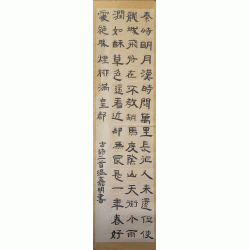 秦時明月漢時關萬里長征人未還但使
龍城飛将在不教胡馬度陰山天街小雨
潤如酥草色遥看近却無最是一年春好
處絕勝煙柳滿皇都
古詩二首嘉明書